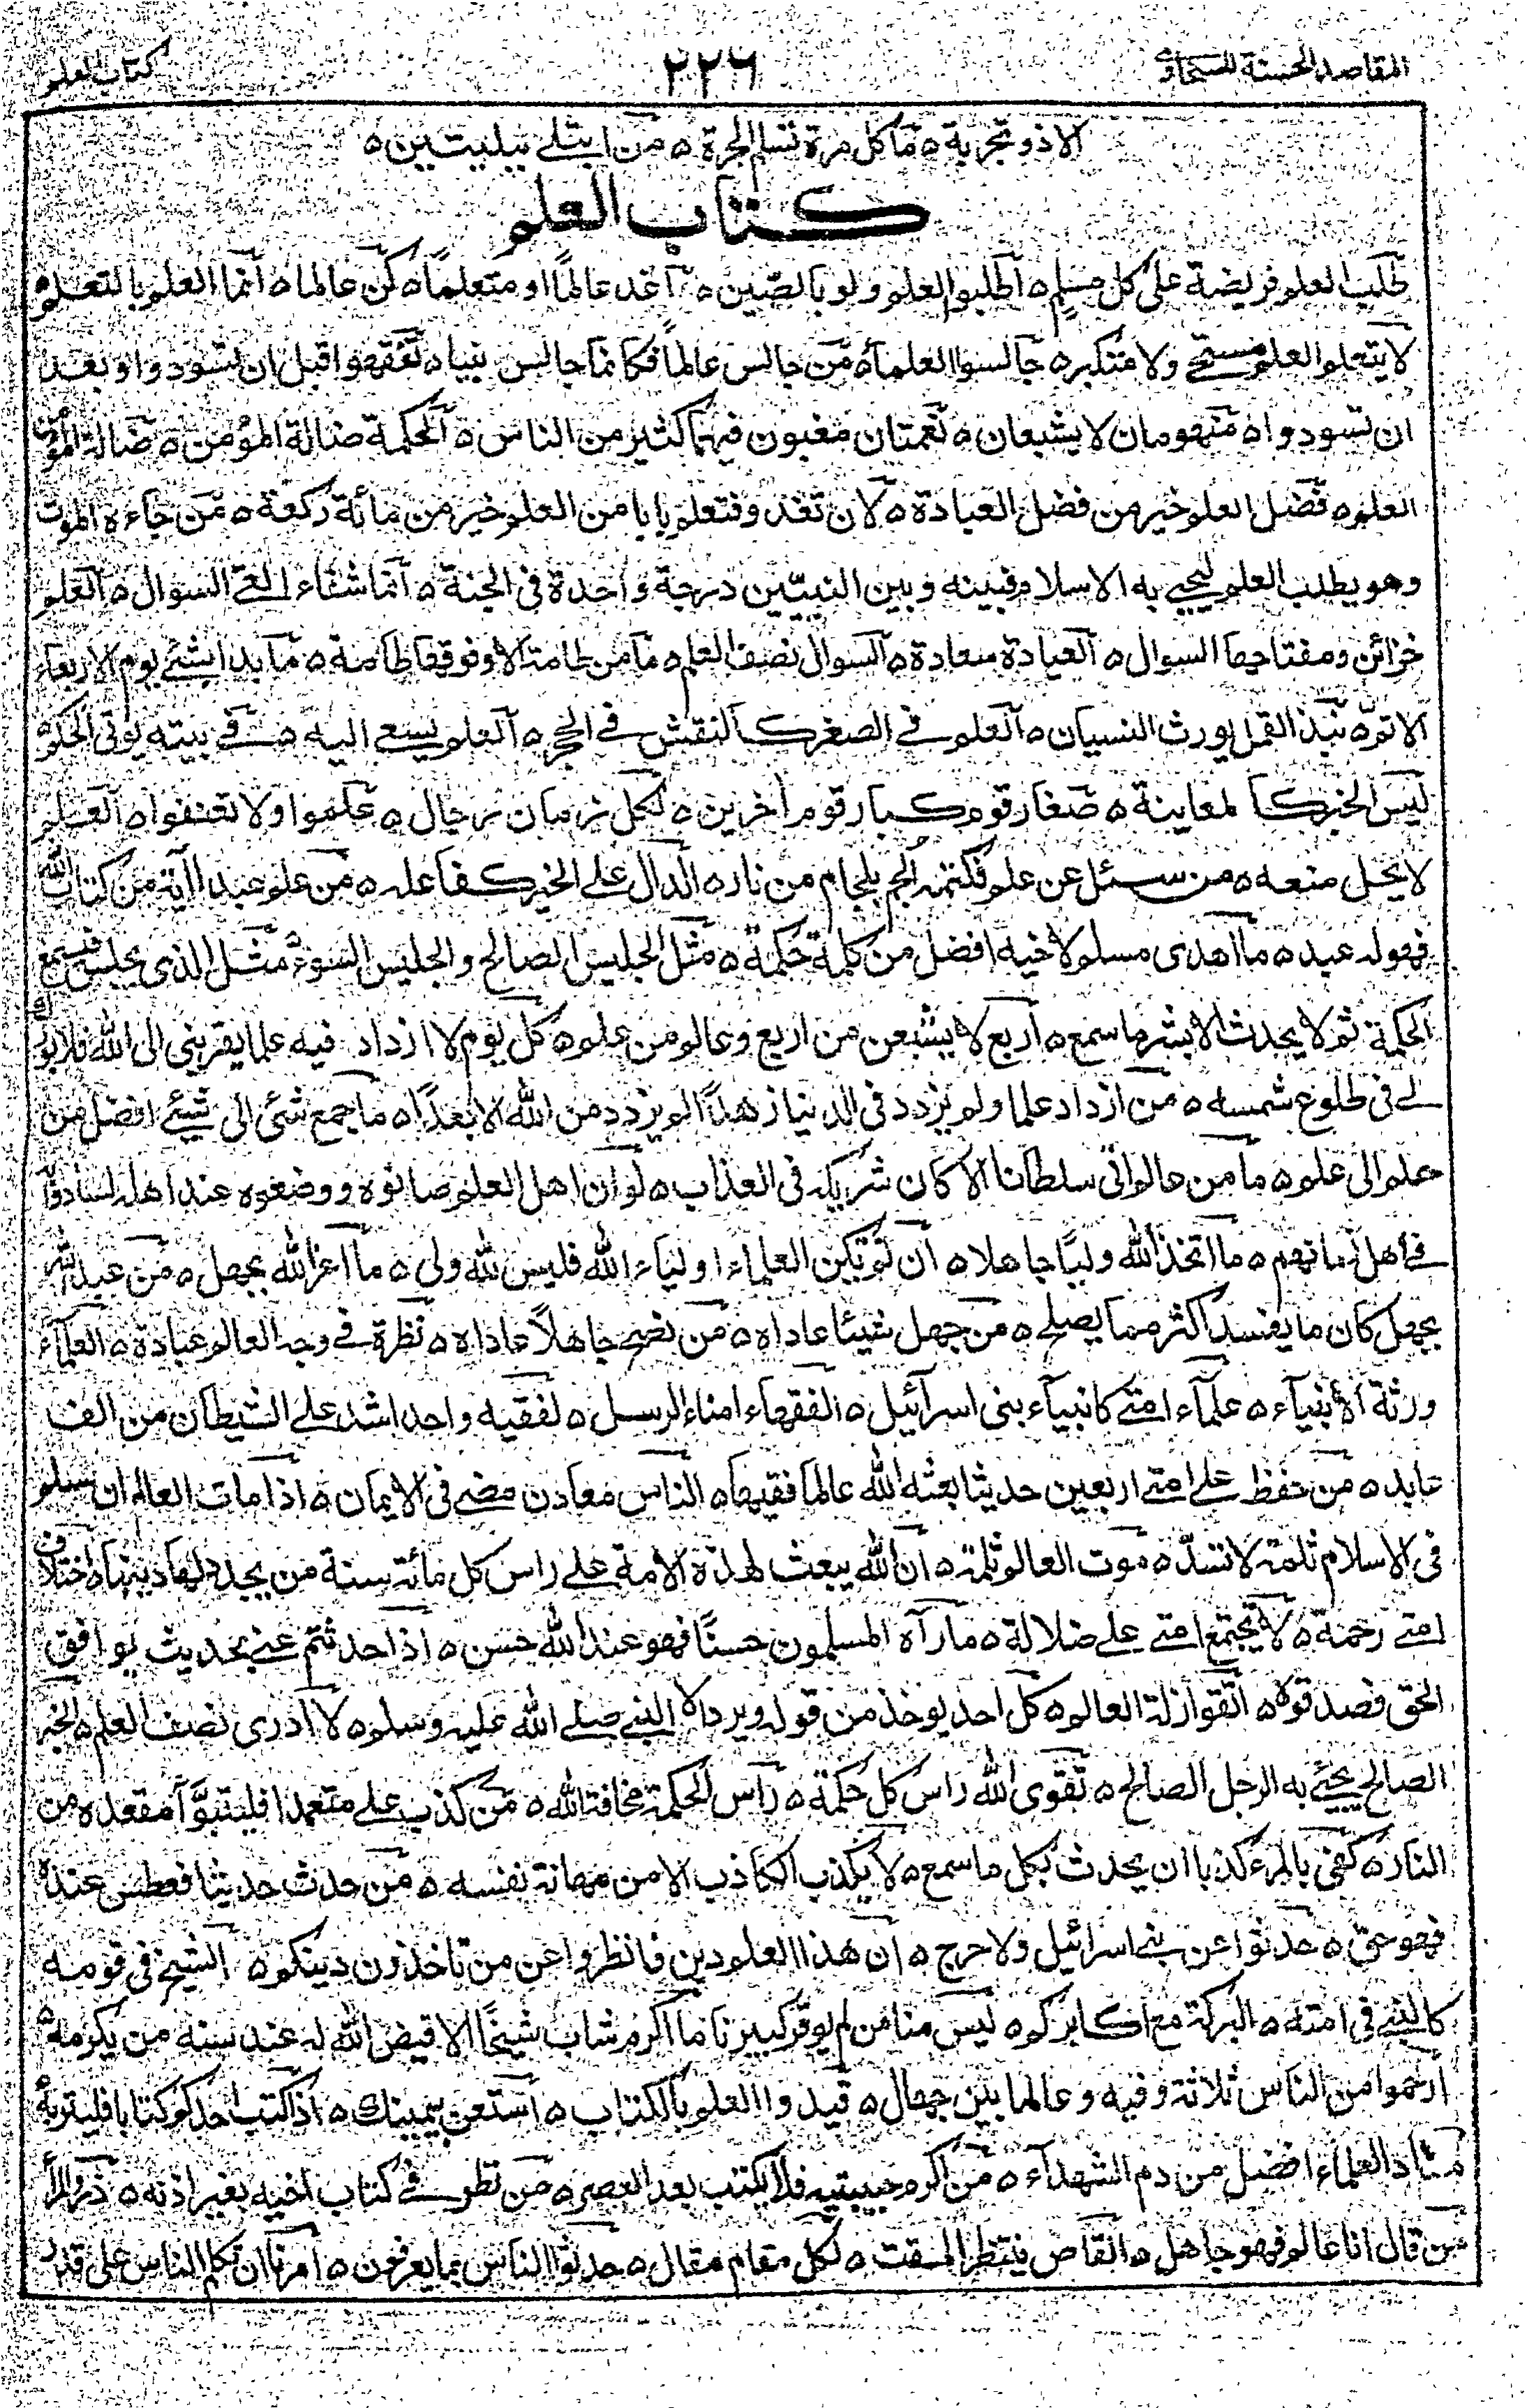 المقاصد الحسنة للسخاوي ۲۲۶ كتاب العلم
الا ذو تجربة ٥ ما كل مرة تسلم الجرة ٥ من ابتلے ببليتين ٥
كتاب العلم
طلب العلم فريضة على كل مسلم ٥ اطلبوا العلم ولو بالصين ٥ اغد عالمًا او متعلمًا ٥ كن عالما ٥ انما العلم بالتعلم ٥
لا يتعلم العلم مستحے ولا متكبر ٥ جالسوا العلماء ٥ من جالس عالمًا فكانما جالس نبيا ٥ تفقهوا قبل ان تسودوا وبعد
ان تسودوا ٥ منهومان لا يشبعان ٥ نعمتان مغبون فيهما كثير من الناس ٥ الحكمة ضالة المؤمن ٥ ضالة المؤمن
العلم ٥ فضل العلم خير من فضل العبادة ٥ لان تغدو فتعلم بابا من العلم خير من مائة ركعة ٥ من جاءه الموت
وهو يطلب العلم ليحيے به الاسلام فبينه وبين النبيّين درجة واحدة فى الجنة ٥ انما شفاء العے السوال ٥ العلم
خزائن ومفتاحها السوال ٥ العيادة سعادة ٥ السوال نصف العلم ٥ ما من طامة الا وفوقها طامة ٥ ما بدا بشئے يوم الاربعاء
الا تم ٥ نبذ القمل يورث النسيان ٥ العلم فے الصغر كالنقش فے الحجر ٥ العلم يسعے اليه ٥ فے بيته يوتى الحكم ٥
ليس الخبر كالمعاينة ٥ صغار قوم كبار قوم اخرين ٥ لكل زمان رجال ٥ علموا ولا تعنفوا ٥ العلم
لا يحل منعه ٥ من سئل عن علم فكتمه الجم بلجام من نار ٥ الدال علے الخير كفاعله ٥ من علم عبدا اٰية من كتاب الله
فهو له عبد ٥ ما اهدى مسلم لاخيه افضل من كلمة حكمة ٥ مثل الجليس الصالح والجليس السوء ٥ مثل الذى يجلس فيسمع
الحكمة ثم لا يحدث الا بشر ما سمع ٥ اربع لا يشبعن من اربع وعالم من علم ٥ كل يوم لا ازداد فيه علما يقربنى الى الله فلا بورك
لے فى طلوع شمسه ٥ من ازداد علما ولم يزدد فى الدنيا زهدًا لم يزدد من الله الا بعدًا ٥ ما جمع شئى الى شيئے افضل من
حلم الى علم ٥ ما من عالم اتى سلطانا الا كان شريكه فى العذاب ٥ لو ان اهل العلم صانوه ووضعوه عند اهله لسادوا به
فے اهل زمانهم ٥ ما اتخذ الله وليًا جاهلا ٥ ان لم تكن العلماء اولياء الله فليس لله ولى ٥ ما اعز الله بجهل ٥ من عبد الله
بجهل كان ما يفسد اكثر مما يصلح ٥ من جهل شيئا عاداه ٥ من نصح جاهلاً عاداه ٥ نظرة فے وجه العالم عبادة ٥ العلماء
ورثة الانبياء ٥ علماء امتے كانبياء بنى اسرائيل ٥ الفقهاء امناء الرسل ٥ لفقيه واحد اشد علے الشيطان من الف
عابد ٥ من حفظ علے امتے اربعين حديثا بعثه الله عالما فقيها ٥ الناس معادن مضے فى الايمان ٥ اذا مات العالم انسلم
فى الاسلام ثلمة لا تسدّ ٥ موت العالم ثلمة ٥ ان الله يبعث لهذه الامة علے راس كل مائة سنة من يجدد لها دينها ٥ اختلاف
امتے رحمة ٥ لا تجتمع امتے علے ضلالة ٥ ما رآه المسلمون حسنًا فهو عند الله حسن ٥ اذا حدثتم عنے بحديث يوافق
الحق فصدقوه ٥ اتقوا زلة العالم ٥ كل احد يوخذ من قوله ويرد الا النبے صلے الله عليه وسلم ٥ لا ادرى نصف العلم ٥ الخبر
الصالح يجيئے به الرجل الصالح ٥ تقوى الله راس كل حكمة ٥ راس الحكمة مخافة الله ٥ من كذب علے متعمدا فليتبوّأ مقعده من
النار ٥ كفى بالمرء كذبا ان يحدث بكل ما سمع ٥ لا يكذب الكاذب الا من مهانة نفسه ٥ من حدث حديثا فعطس عنده
فهو حق ٥ حدثوا عن بنے اسرائيل ولا حرج ٥ ان هذا العلم دين فانظروا عن من تاخذون دينكم ٥ الشيخ فى قومه
كالنبے فى امته ٥ البركة مع اكابركم ٥ ليس منا من لم يوقر كبيرنا ما اكرم شاب شيخًا الا قيض الله له عند سنه من يكرمه ٥
ارحموا من الناس ثلاثة وفيه وعالما بين جهال ٥ قيدوا العلم بالكتاب ٥ استعن بيمينك ٥ اذا كتب احدكم كتابا فليتربه ٥
مداد العلماء افضل من دم الشهداء ٥ من اكرم حبيبتيه فلا يكتب بعد العصر ٥ من نظر فے كتاب اخيه بغير اذنه ٥
من قال انا عالم فهو جاهل ٥ القاص ينتظر المقت ٥ لكل مقام مقال ٥ حدثوا الناس بما يعرفون ٥ امرنا ان نكلم الناس على قدر